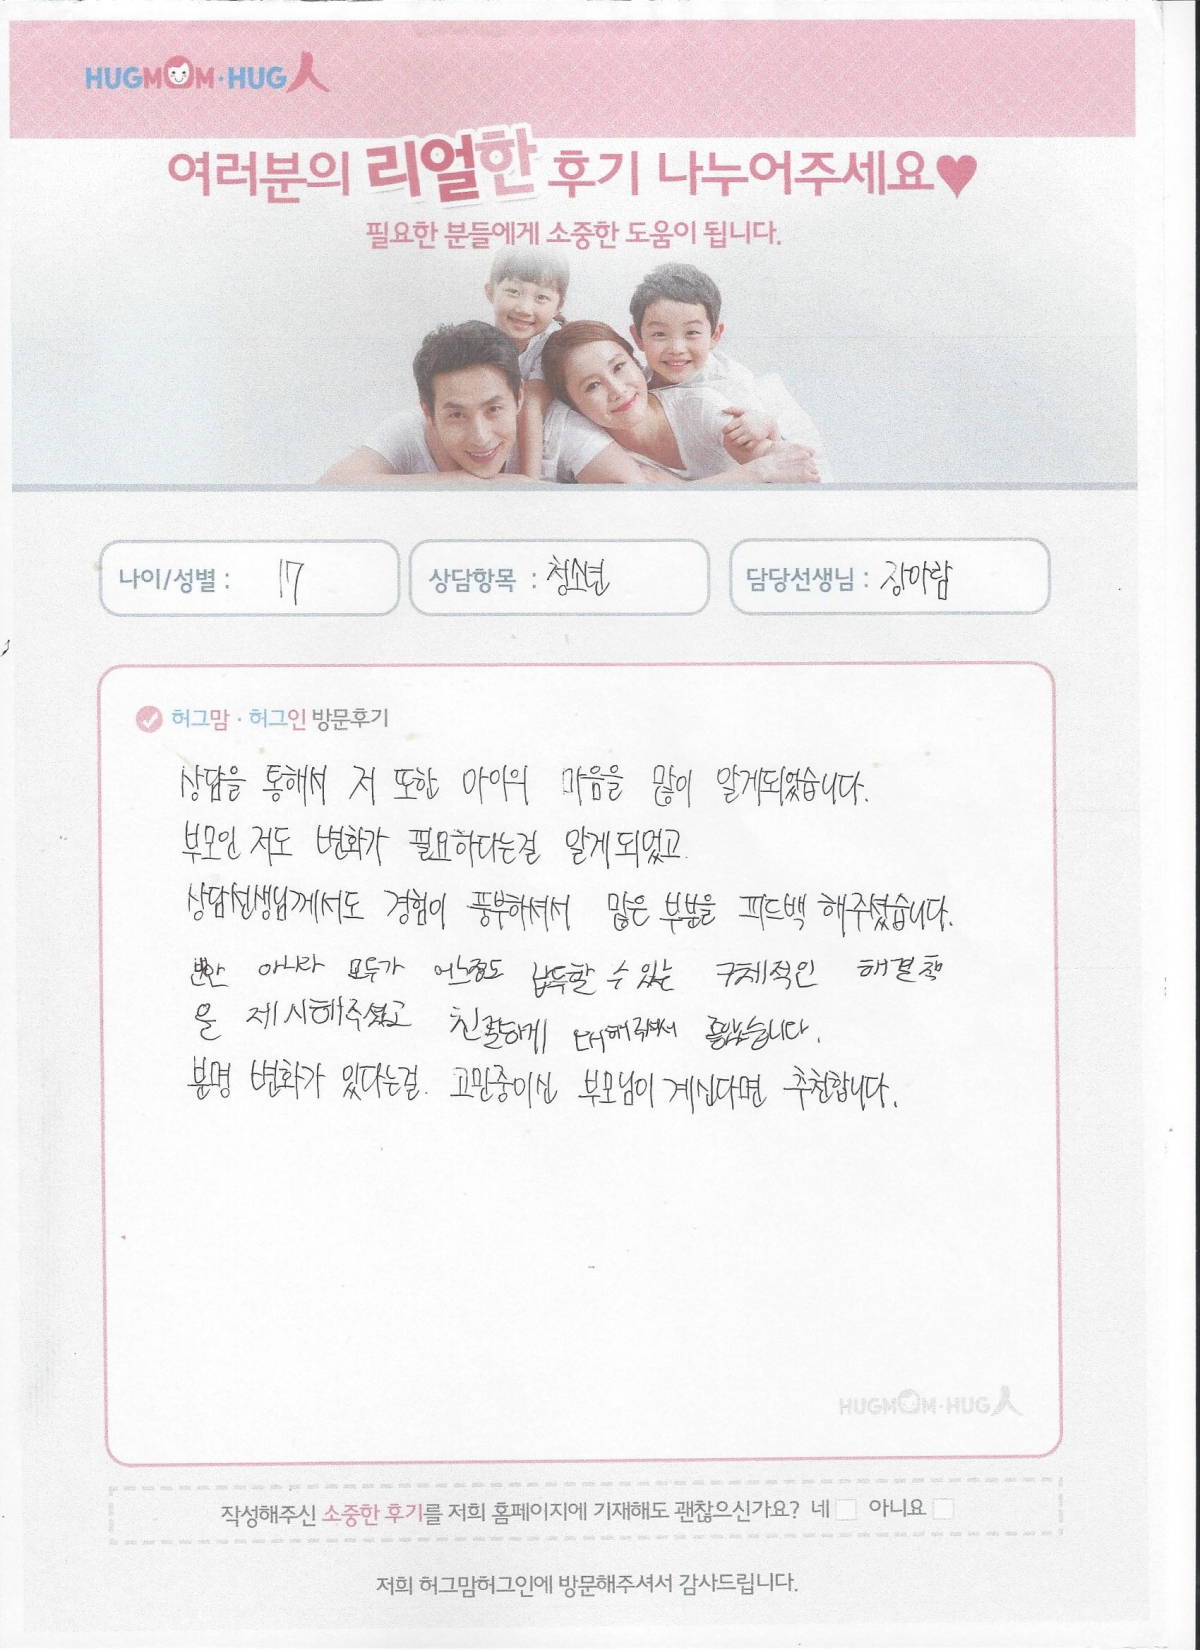 HUGMOM·HUG人
여러분의 리얼한 후기 나누어주세요♥
필요한 분들에게 소중한 도움이 됩니다.
나이/성별 : 17 상담항목 : 청소년 담당선생님 : 장아람
허그맘·허그인 방문후기
상담을 통해서 저 또한 아이의 마음을 많이 알게되었습니다.
부모인 저도 변화가 필요하다는걸 알게되었고
상담선생님께서도 경험이 풍부하셔서 많은 부분을 피드백 해주셨습니다.
뿐만 아니라 모두가 어느정도 납득할 수 있는 구체적인 해결책
을 제시해주셨고 친절하게 대해주셔서 좋았습니다.
분명 변화가 있다는걸. 고민중이신 부모님이 계신다면 추천합니다.
HUGMOM·HUG人
작성해주신 소중한 후기를 저희 홈페이지에 기재해도 괜찮으신가요? 네 □ 아니요 □
저희 허그맘허그인에 방문해주셔서 감사드립니다.